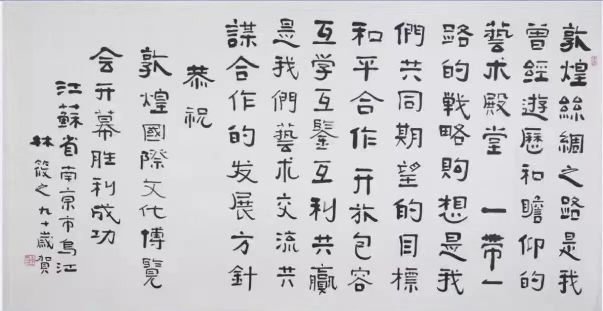 敦煌絲綢之路是我
曾經遊歷和瞻仰的
藝术殿堂 一帶一
路的戰略构想是我
們共同期望的目標
和平合作 开放包容
互学互鑒互利共贏
是我們藝术交流共
謀合作的发展方針
恭祝
敦煌國際文化博覽
会开幕胜利成功
江蘇省南京市烏江
林筱之九十歲賀